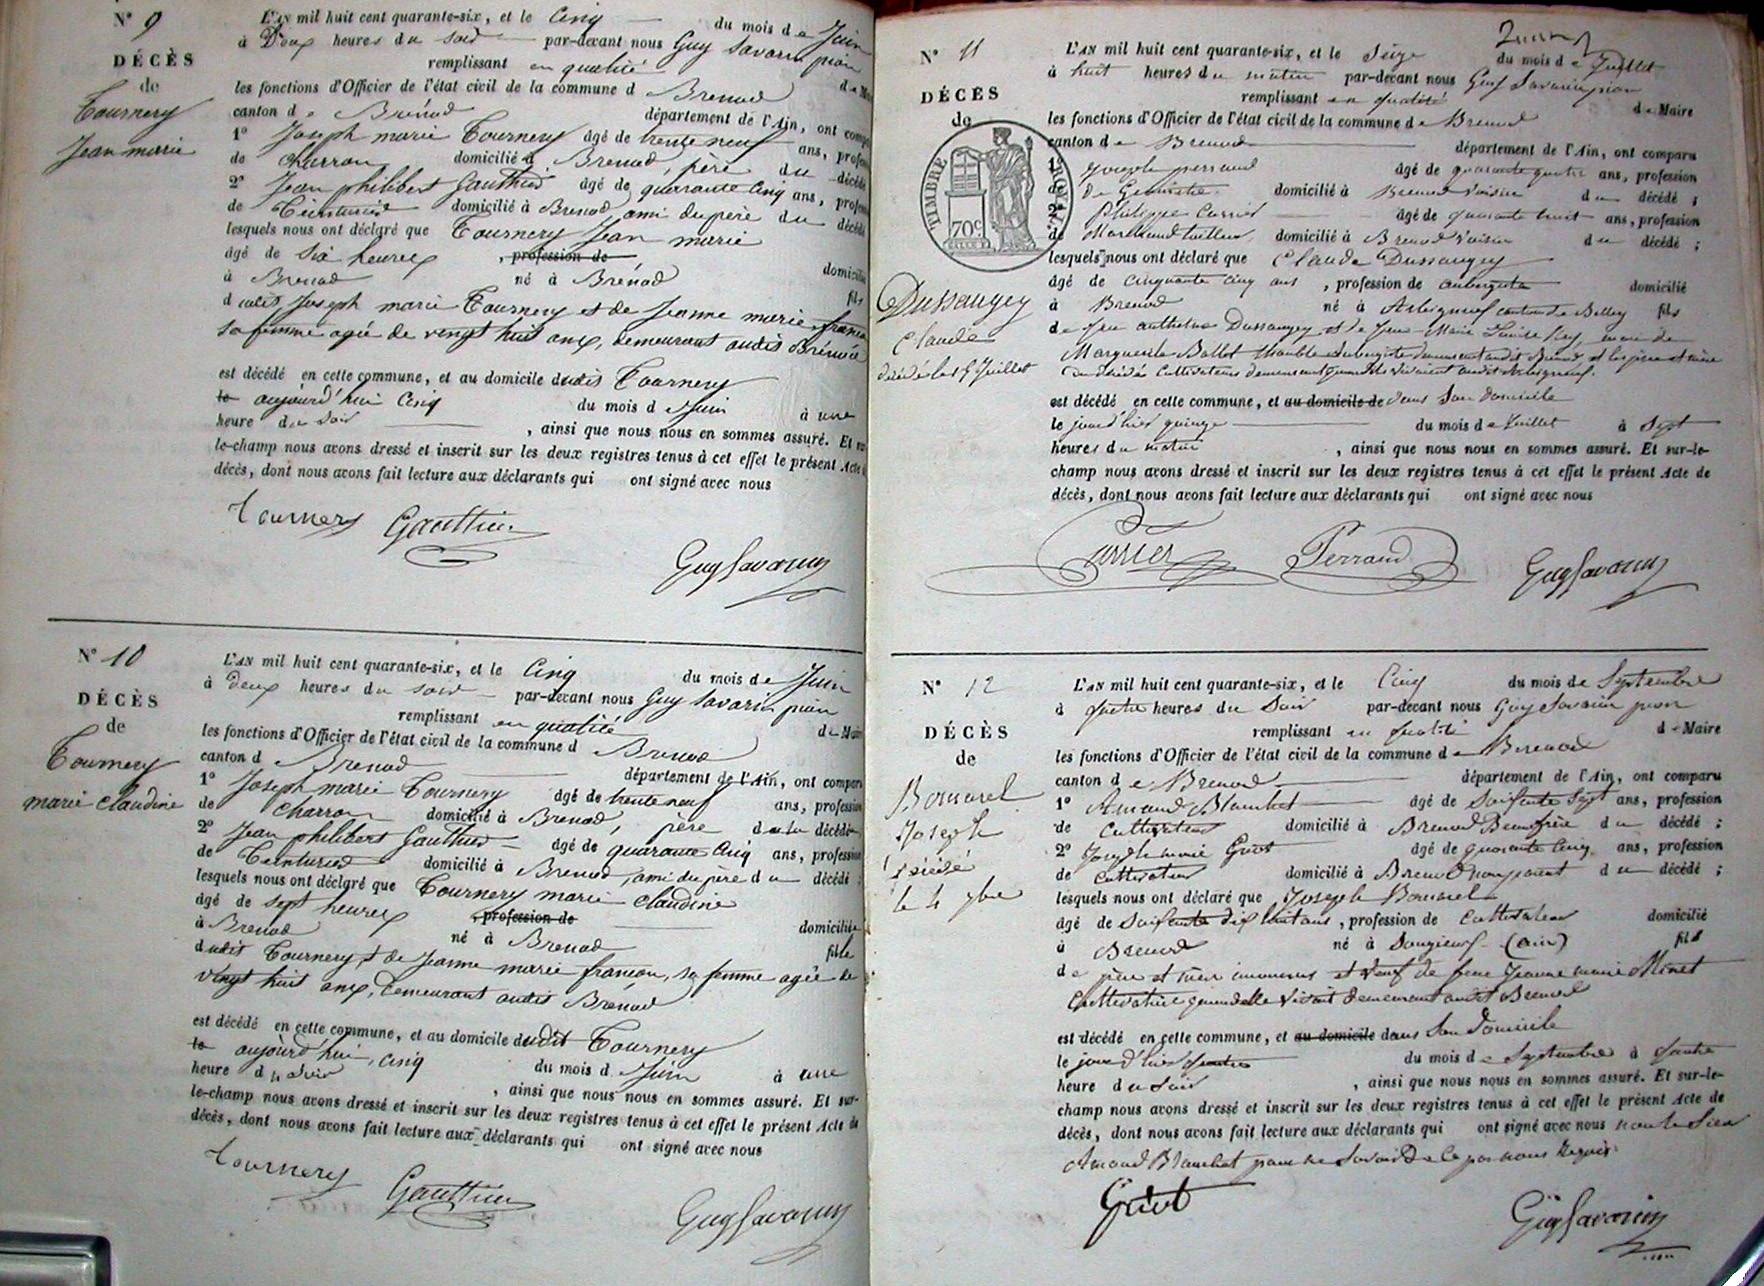 N° 9
DÉCÈS
de
Tournery
Jean marie
L'AN mil huit cent quarante-six, et le Cinq du mois de Juin
à Deux heures du soir par-devant nous Guy Savarin
remplissant en qualité de
les fonctions d'Officier de l'état civil de la commune d Brenod
canton de Brénod département de l'Ain, ont
1° Joseph marie Tournery âgé de trente neuf ans,
de Charron domicilié à Brenod, père du décédé
2° Jean philibert Gauthier âgé de quarante Cinq ans,
de Teinturier domicilié à Brenod ami du père du décédé
lesquels nous ont déclaré que Tournery Jean marie
âgé de Six heures , profession de
à Brenod né à Brénod fils
dudit Joseph marie Tournery et de Jeanne marie
Sa femme agée de vingt huit ans, demeurant audit Brénod
est décédé en cette commune, et au domicile dudit Tournery
le aujourd'hui Cinq du mois d Juin à une
heure du soir , ainsi que nous nous en sommes assuré. Et
le-champ nous avons dressé et inscrit sur les deux registres tenus à cet effet le présent Acte
décès, dont nous avons fait lecture aux déclarants qui ont signé avec nous
Tournery Gauthier
Guy Savarin
N° 10
DÉCÈS
de
Tournery
marie claudine
L'AN mil huit cent quarante-six, et le Cinq du mois de Juin
à deux heures du soir par-devant nous Guy Savarin
remplissant en qualité de Maire
les fonctions d'Officier de l'état civil de la commune d Brenod
canton d Brenod département de l'Ain, ont comparu
1° Joseph marie Tournery âgé de trente neuf ans, profession
de Charron domicilié à Brenod, père de la décédée
2° Jean philibert Gauthier âgé de quarante Cinq ans, profession
de Teinturier domicilié à Brenod, ami du père du décédé ;
lesquels nous ont déclaré que Tournery marie claudine
âgé de sept heures , profession de domiciliée
à Brenod né à Brenod fille
dudit Tournery, & de Jeanne marie françon, sa femme agée de
vingt huit ans, demeurant audit Brénod
est décédé en cette commune, et au domicile dudit Tournery
le aujourd'hui, cinq du mois d Juin à une
heure du soir , ainsi que nous nous en sommes assuré. Et sur-
le-champ nous avons dressé et inscrit sur les deux registres tenus à cet effet le présent Acte de
décès, dont nous avons fait lecture aux déclarants qui ont signé avec nous
Tournery Gauthier
Guy Savarin
N° 11
DÉCÈS
de
TIMBRE ROYAL
70c
Dussaugey
Claude
décédé le 15 Juillet
L'AN mil huit cent quarante-six, et le Seize du mois de Juillet
à huit heures du matin par-devant nous Guy Savarin
remplissant en qualité de Maire
les fonctions d'Officier de l'état civil de la commune de Brenod
canton de Brenod département de l'Ain, ont comparu
1° Joseph perraud âgé de quarante quatre ans, profession
de domicilié à Brenod Voisin du décédé ;
2° Philippe Currier âgé de quarante huit ans, profession
de Marchand tailleur domicilié à Brenod Voisin du décédé ;
lesquels nous ont déclaré que Claude Dussaugey
âgé de cinquante cinq ans , profession de aubergiste domicilié
à Brenod né à Arbigneuf canton de Belley fils
de feu anthelme Dussaugey et de feue Marie mari de
Marguerite Ballet aubergiste demeurant audit Brenod et les père et mère
du décédé Cultivateurs demeurant quand ils vivaient audit Arbigneuf.
est décédé en cette commune, et au domicile de dans Son domicile
le jour d'hier quinze du mois de Juillet à Sept
heures du matin , ainsi que nous nous en sommes assuré. Et sur-le-
champ nous avons dressé et inscrit sur les deux registres tenus à cet effet le présent Acte de
décès, dont nous avons fait lecture aux déclarants qui ont signé avec nous
Currier Perraud Guy Savarin
N° 12
DÉCÈS
de
Bonnarel
Joseph
décédé
le 4 7bre
L'AN mil huit cent quarante-six, et le Cinq du mois de Septembre
à quatre heures du Soir par-devant nous Guy Savarin
remplissant en qualité de Maire
les fonctions d'Officier de l'état civil de la commune de Brenod
canton de Brenod département de l'Ain, ont comparu
1° Amand Blanchet âgé de Soixante Sept ans, profession
de Cultivateur domicilié à Brenod Beaufrère du décédé ;
2° Joseph marie Griot âgé de quarante cinq ans, profession
de Cultivateur domicilié à Brenod non parent du décédé ;
lesquels nous ont déclaré que Joseph Bonnarel
âgé de Soixante dix huit ans , profession de Cultivateur domicilié
à Brenod né à Songieux (ain) fils
de père et mère inconnus et Veuf de feue Jeanne marie Minet
Cultivatrice quand elle Vivait demeurant audit Brenod
est décédé en cette commune, et au domicile dans Son domicile
le jour d'hier quatre du mois de Septembre à quatre
heure du Soir , ainsi que nous nous en sommes assuré. Et sur-le-
champ nous avons dressé et inscrit sur les deux registres tenus à cet effet le présent Acte de
décès, dont nous avons fait lecture aux déclarants qui ont signé avec nous non le Sieur
Amand Blanchet pour ne Savoir de ce par nous Requis
Griot
Guy Savarin